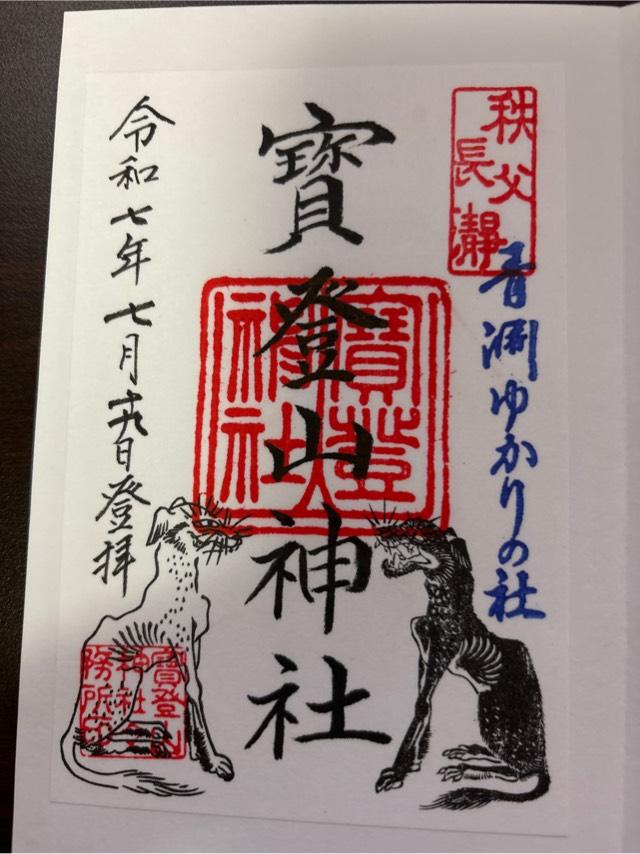 秩父
長瀞
青淵ゆかりの社
寶登山神社
寶登山
神社
令和七年七月十九日登拝
寶登山
神社
務所印